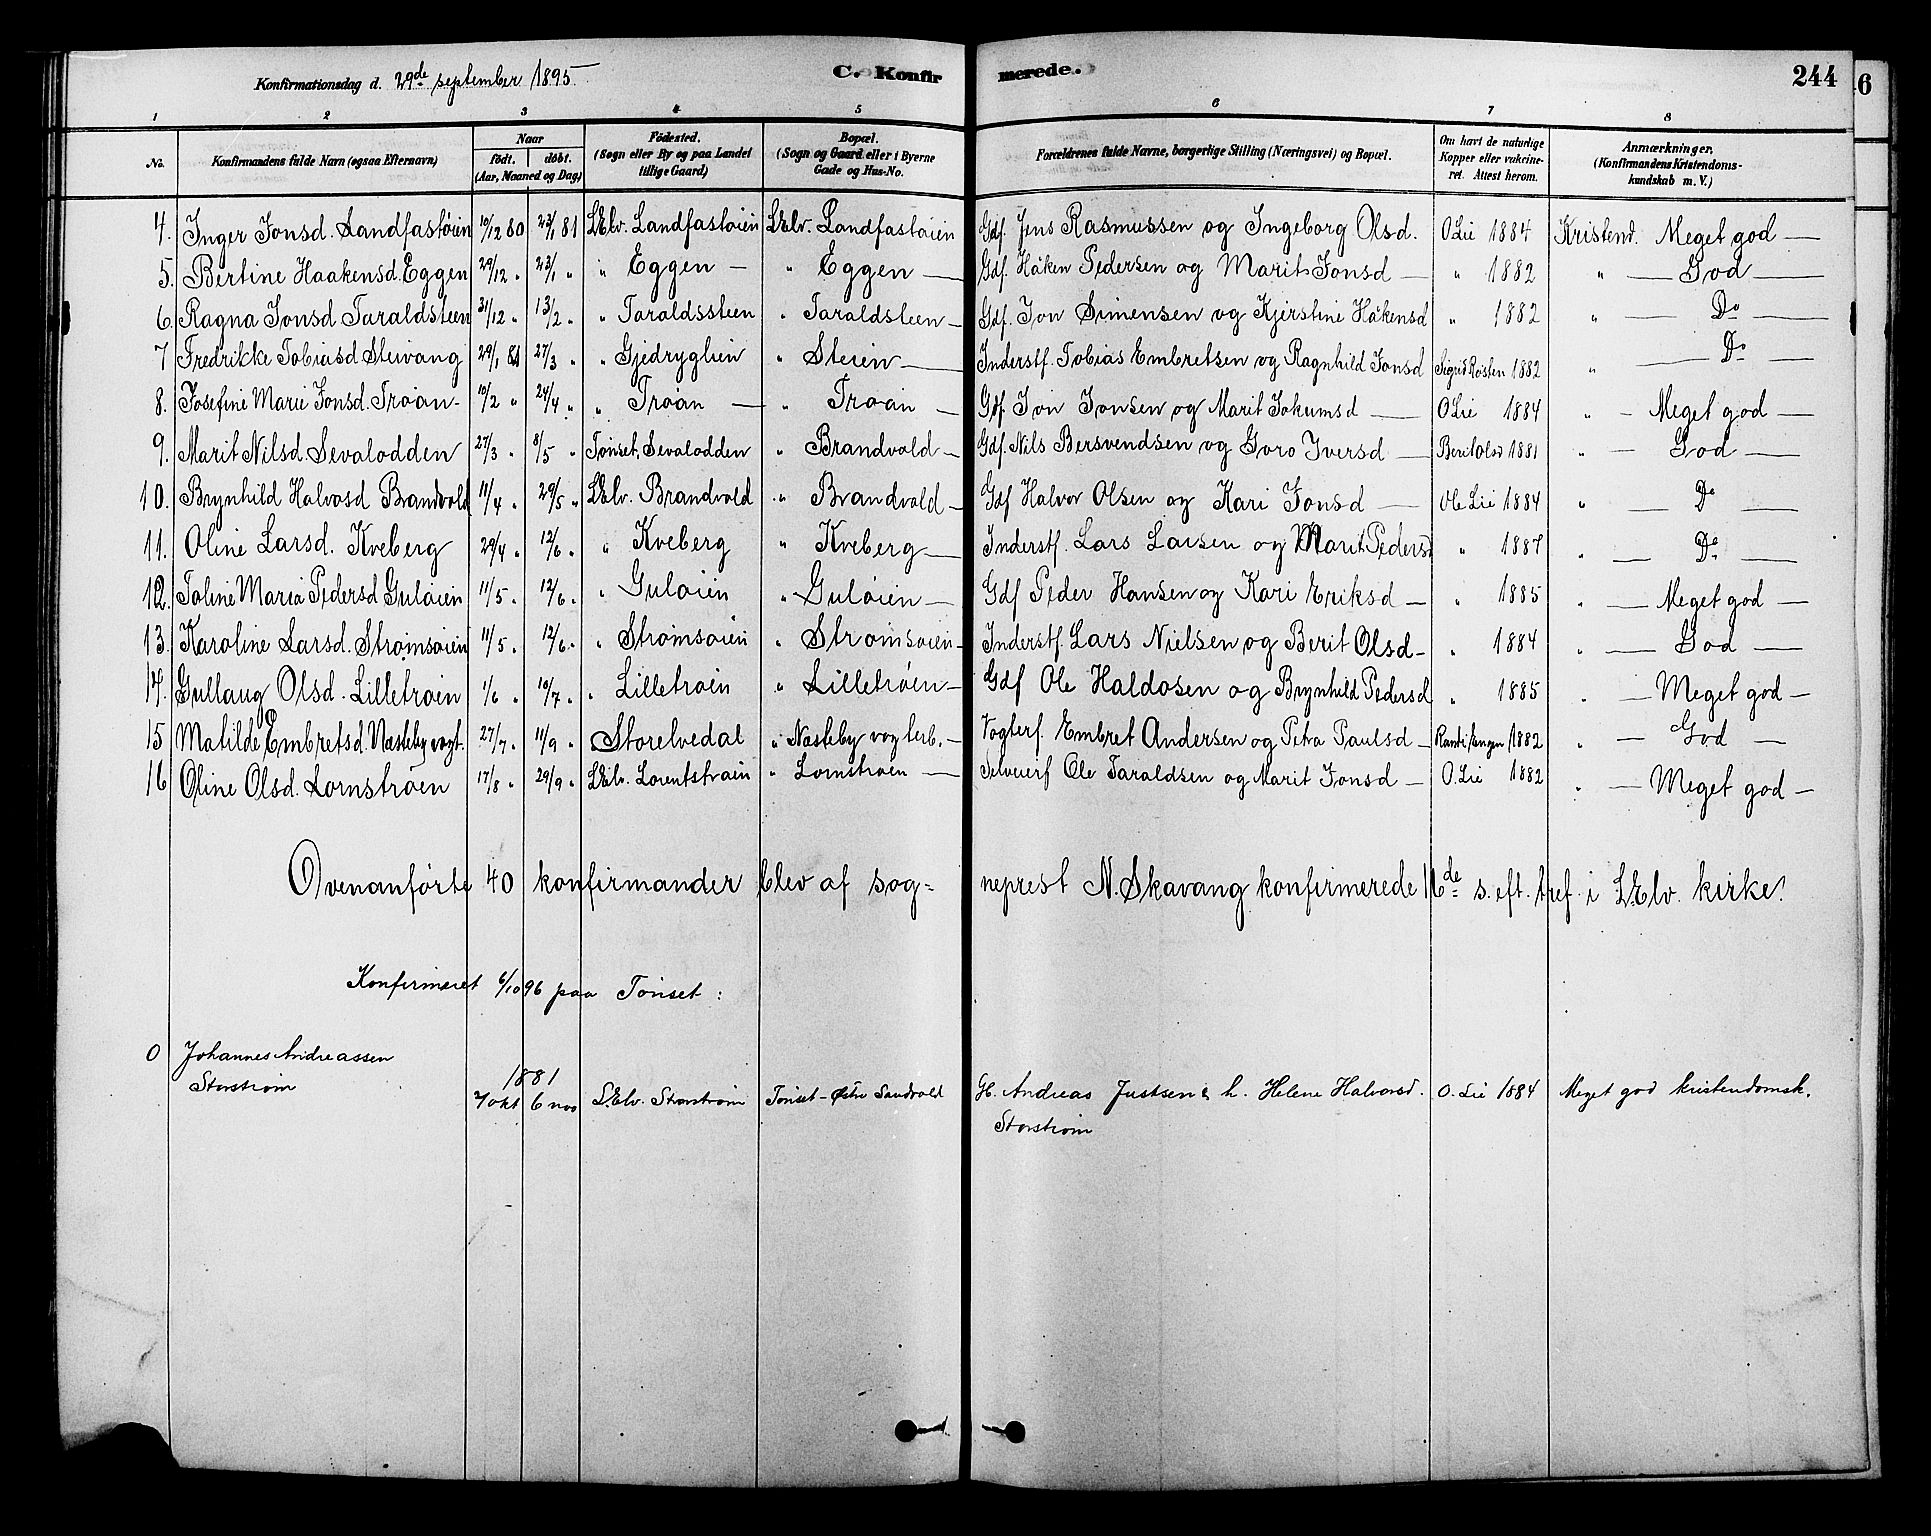 Konfirmationsdag d. 29de september 1895
C. Konfir merede.
244
6
1 2 3 4 5 6 7 8
No. Konfirmandens fulde Navn (ogsaa Efternavn) Naar født. døbt. (Aar, Maaned og Dag) Fødested. (Sogn eller By og paa Landet tillige Gaard) Bopæl. (Sogn og Gaard eller i Byerne Gade og Hus-No. Forældrenes fulde Navne, borgerlige Stilling (Næringsvei) og Bopæl. Om havt de naturlige Kopper eller vakcineret. Attest herom. Anmærkninger, (Konfirmandens Kristendomskundskab m. V.)
4. Inger Jonsd. Landfastøien 10/12 80 23/1 81 L.Elv. Landfastøien L.Elv. Landfastøien Gdf. Jens Rasmussen og Ingeborg Olsd. O Lie 1884 Kristend. Meget god —
5. Bertine Haakensd. Eggen 29/12 " 23/1 " " Eggen — " Eggen — Gdf. Håken Pedersen og Marit Jonsd — " 1882 " — God —
6. Ragna Jonsd Taraldsteen 31/12 " 13/2 " " Taraldssteen " Taraldsteen — Gdf. Jon Simensen og Kjerstine Håkensd " 1882 " — Do —
7 Fredrikke Tobiasd Steivang 29/1 81 27/3 " " Gjedryglien " Steien — Inderstf. Tobias Embretsen og Ragnhild Jonsd Sigrid Røsten 1882 " — Do —
8. Josefine Marie Jonsd. Trøan - 10/2 " 24/4 " " Trøan — " Trøan — Gdf. Jon Jonsen og Marit Jokumsd — O Lie 1884 " — Meget god —
9. Marit Nilsd. Sevalodden 27/3 " 8/5 " Tønset, Sevalodden " Brandvold — Gdf. Nils Bersvendsen og Goro Iversd — Berit Olsd 1881 " — God —
10. Brynhild Halvosd Brandvold 11/4 " 29/5 " L.Elv. Brandvold " Brandvold — Gdf Halvor Olsen og Kari Jonsd — Ole Lie 1884 " — Do —
11. Oline Larsd. Kveberg 29/4 " 12/6 " " Kveberg " Kveberg — Inderstf. Lars Larsen og Marit Pedersd " 1887 " — Do —
12. Toline Maria Pedersd Guløien 11/5 " 12/6 " " Guløien " Guløien — Gdf Peder Hansen og Kari Eriksd — " 1885 " — Meget god —
13. Karoline Larsd. Strømsøien 11/5 " 12/6 " " Strømsøien " Strømsøien — Inderstf. Lars Nielsen og Berit Olsd — " 1884 " — God —
14. Gullaug Olsd. Lilletrøen 1/6 " 10/7 " " Lilletrøen " Lilletrøen — Gdf Ole Haldosen og Brynhild Pedersd " 1885 " — Meget god —
15 Matilde Embretsd. Næsteby vogt. 27/7 " 11/9 " Storelvedal " Næsteby vogterb. — Vogterf. Embret Andersen og Petra Paulsd — Randi 1882 " — God —
16 Oline Olsd. Lornstrøen 17/8 " 29/9 " L.Elv. Lorentstrøen " Lornstrøen — Selveierf Ole Taraldsen og Marit Jonsd — O. Lie 1882 " — Meget god —
Ovenanførte 40 konfirmander blev af sog= neprest N. Skavang konfirmerede 16de s. eft. tref. i L.Elv. kirke.
Konfirmeret 6/10 96 paa Tønset :
0 Johannes Andreassen
Storstrøm
1881
7 okt 6 nov L.Elv. Storstrøm Tønset - Østre Sandvold G. Andreas Justsen & h. Helene Halvorsd. O. Lie 1884 Meget god kristendomsk.
Storstrøm